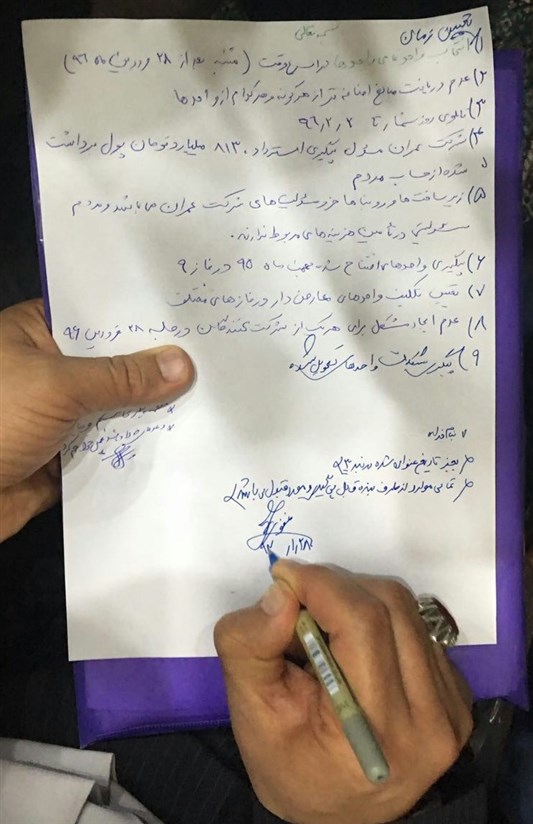 بسمه تعالی
تعیین زمان
۱) انتخاب واحدهای واحدها در اسرع وقت ( شنبه بعد از ۲۸ فروردین ماه ۹۶)
۲) عدم دریافت مبالغ اضافه تر از هرگونه و هر کدام از واحدها
۳) تابلوی روز شمار تا ۹۶,۲,۲
۴) شرکت عمران مسئول پیگیری استرداد ۸۱۳۰ میلیارد تومان پول برداشت
شده از حساب مردم
۵) زیرساخت ها و روبنا ها جزو مسئولیت های شرکت عمران می باشد و مردم
مسئولیتی در تامین هزینه های مربوط ندارند.
۶) پیگیری واحدهای افتتاح شده بهمن ماه ۹۵ در فاز ۹
۷) تعیین تکلیف واحدهای معارض دار در فازهای مختلف
۸) عدم ایجاد مشکل برای هر یک از شرکت کنندگان در جلسه ۲۸ فروردین ۹۶
۹) پیگیری مشکلات واحدهای تحویل شده
بجز تاریخ عنوان شده در بند ۳
تمامی موارد از طرف بنده قابل پیگیری و مورد قبول می باشد